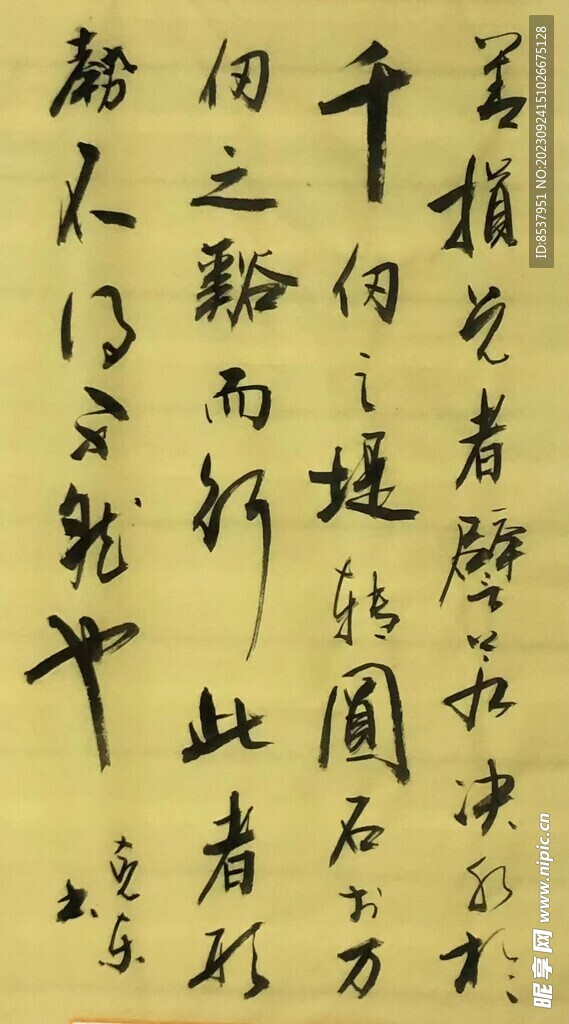 善損兑者譬若决水於
千仞之堤转圓石於万
仞之谿而行此者形
勢不得不然也
东
书
ID:8537951 NO:20230924151026675128
昵享网 www.nipic.cn